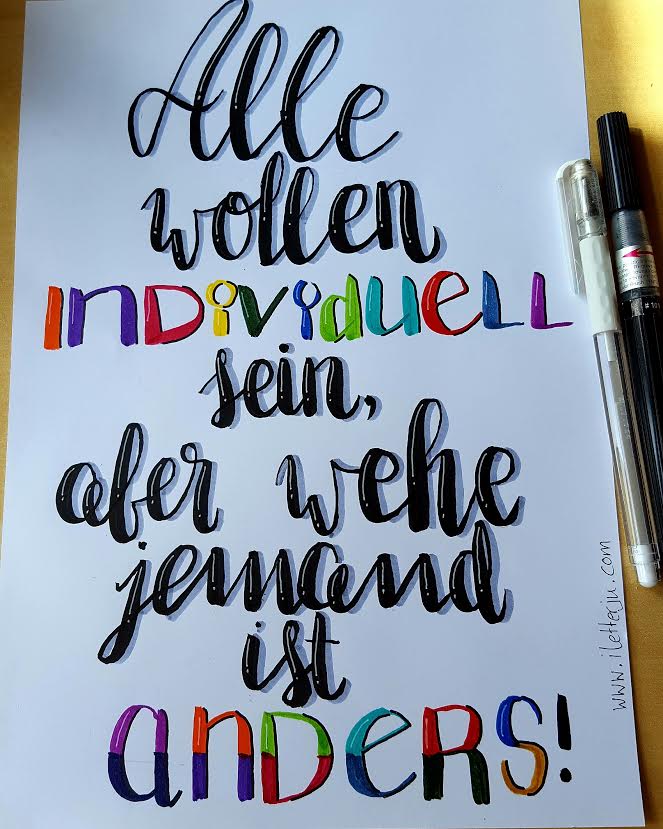 Alle
wollen
INDiViDuELL
sein,
aber wehe
jemand
ist
anDeRS!
www.iletterju.com